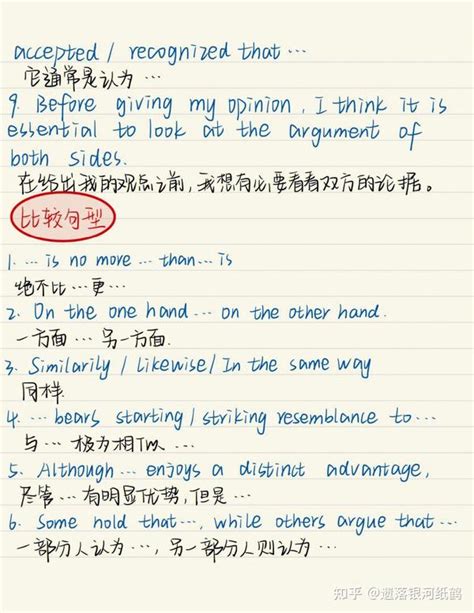 accepted / recognized that …
它通常是认为 …
9. Before giving my opinion, I think it is
essential to look at the argument of
both sides.
在给出我的观点之前,我想有必要看看双方的论据。
比较句型
1. … is no more … than … is
绝不比 … 更 …
2. On the one hand … on the other hand.
一方面 … 另一方面.
3. Similarily / Likewise / In the same way
同样.
4. … bears starting / striking resemblance to …
与 … 极为相似 …
5. Although … enjoys a distinct advantage,
尽管 … 有明显优势,但是 …
6. Some hold that …, while others argue that …
一部分人认为 …, 另一部分人则认为 …
知乎 @遗落银河纸鹤